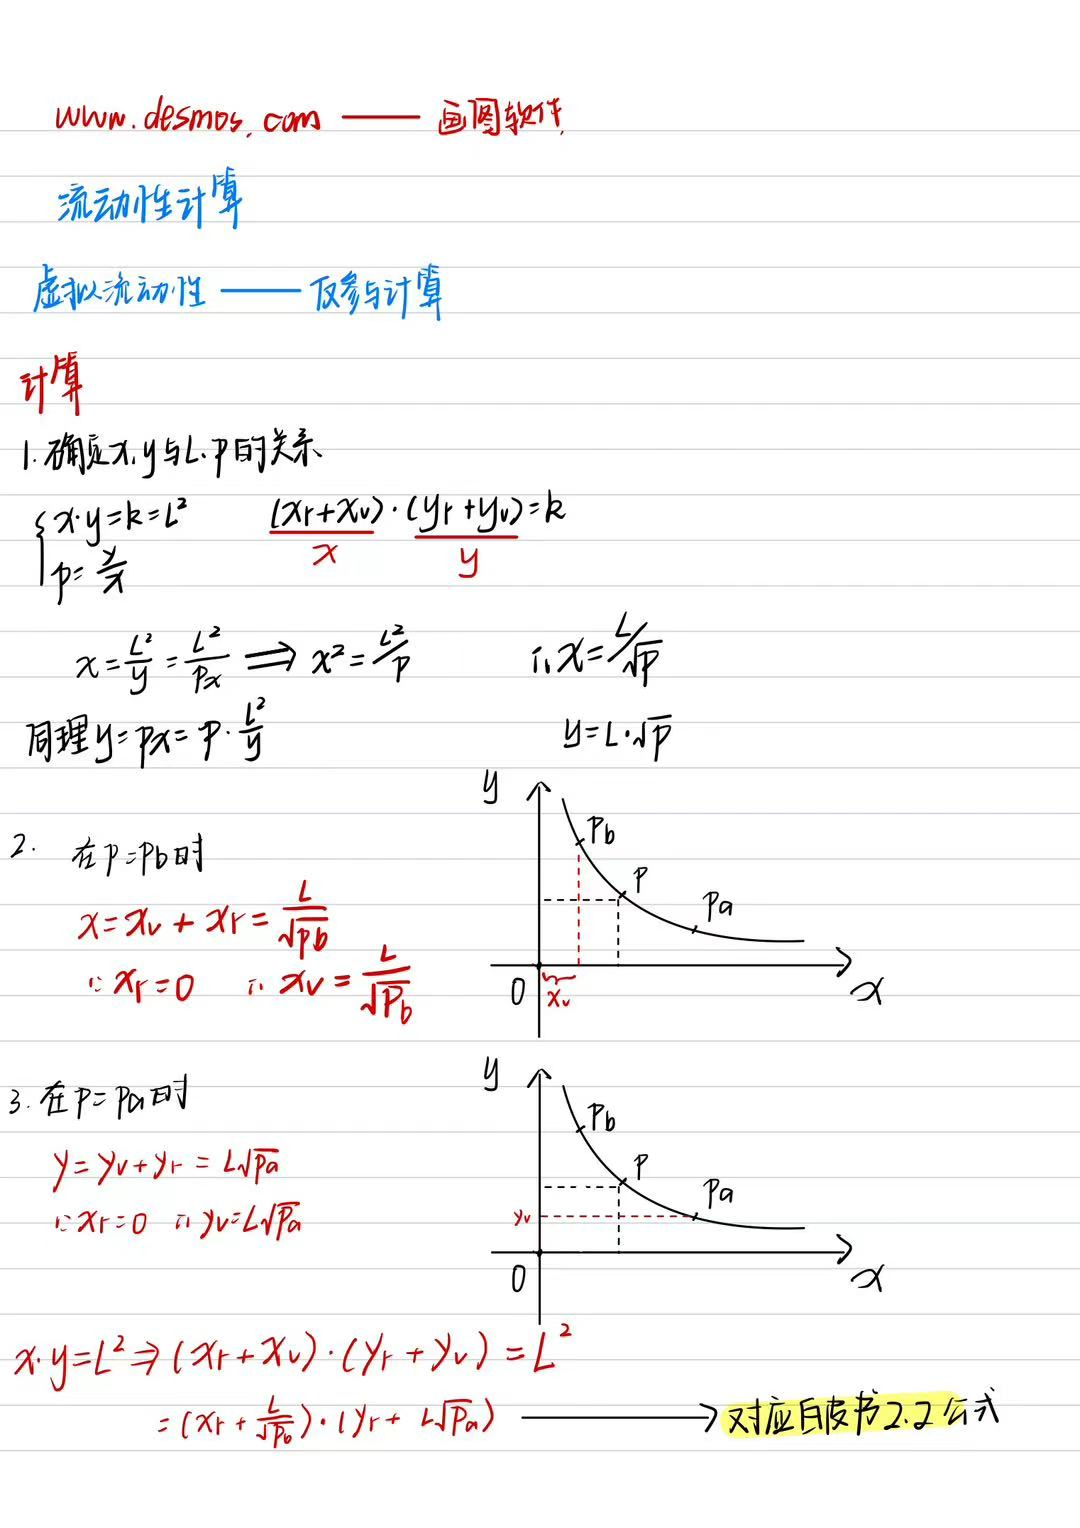 www.desmos.com —— 画图软件
流动性计算
虚拟流动性 —— 仅参与计算
计算
1. 确定x,y与L,p的关系
x·y=k=L² (xr+xv)·(yr+yv)=k
p=y/x x y
x=L²/y=L²/px ⟹ x²=L²/p ∴x=L/√p
同理y=px=p·L²/y y=L·√p
y
Pb
P
Pa
0 xv x
2. 在p=pb时
x=xv+xr=L/√pb
∵xr=0 ∴xv=L/√Pb
y
Pb
P
Pa
yv
0 x
3. 在p=pa时
y=yv+yr=L√pa
∵xr=0 ∴yv=L√Pa
x·y=L²⇒(xr+xv)·(yr+yv)=L²
=(xr+L/√Pb)·(yr+L√Pa) ⟶ 对应白皮书2.2公式